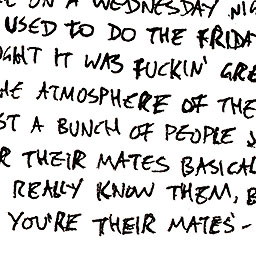 ON A WEDNESDAY NI
USED TO DO THE FRIDA
GHT IT WAS FUCKIN' GRE
HE ATMOSPHERE OF THE
ST A BUNCH OF PEOPLE
R THEIR MATES BASICAL
REALLY KNOW THEM, B
YOU'RE THEIR MATES -